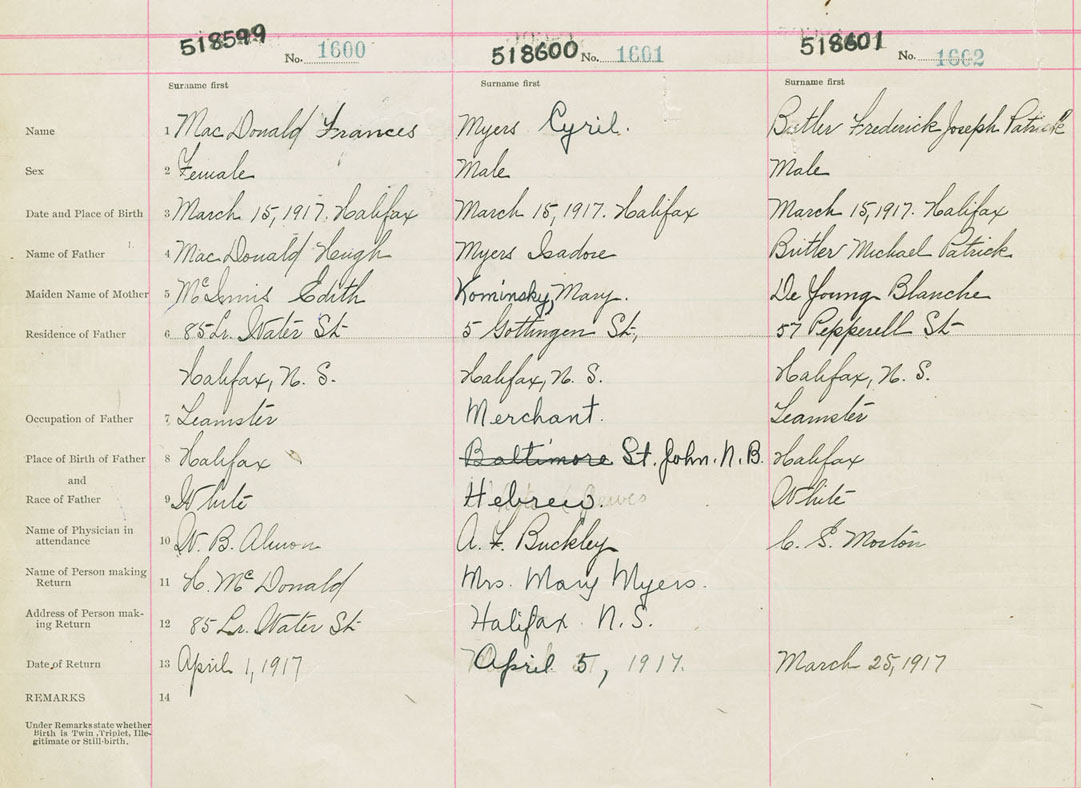 518599 No. 1600 518600 No. 1601 518601 No. 1602
Surname first Surname first Surname first
Name 1 MacDonald Frances Myers Cyril. Butler Frederick Joseph Patrick
Sex 2 Female Male Male
Date and Place of Birth 3 March 15, 1917. Halifax March 15, 1917. Halifax March 15, 1917. Halifax
Name of Father 4 MacDonald Hugh Myers Isadore Butler Michael Patrick
Maiden Name of Mother 5 McInnis Edith Kominsky, Mary. De Young Blanche
Residence of Father 6 85 Lr. Water St 5 Gottingen St., 57 Pepperell St
Halifax, N. S. Halifax, N. S. Halifax, N. S.
Occupation of Father 7 Teamster Merchant. Teamster
Place of Birth of Father 8 Halifax Baltimore St. John. N. B. Halifax
and
Race of Father 9 White Hebrew. White
Name of Physician in
attendance 10 W. B. Almon A. F. Buckley C. S. Morton
Name of Person making
Return 11 H. McDonald Mrs. Mary Myers.
Address of Person mak-
ing Return 12 85 Lr. Water St Halifax N.S.
Date of Return 13 April 1, 1917 April 5, 1917. March 25, 1917
REMARKS 14
Under Remarks state whether
Birth is Twin, Triplet, Ille-
gitimate or Still-birth.